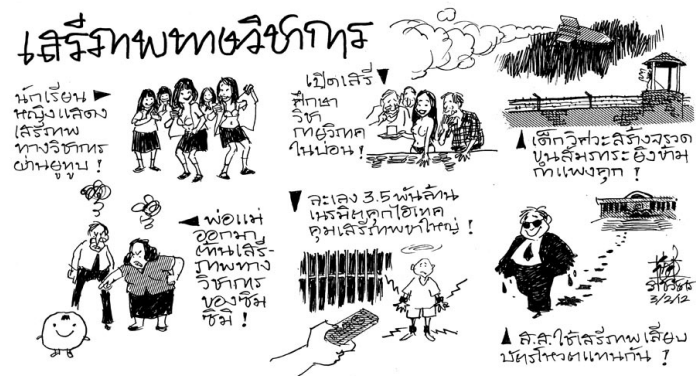 เสรีภาพทางวิชาการ
นักเรียน
หญิงแสดง
เสรีภาพ
ทางวิชาการ
ผ่านยูทูบ !
เปิดเสรี
ศึกษา
วิชา
กายวิภาค
ในบ่อน !
เด็กวิศวะสร้างจรวด
ขนสัมภาระยิงข้าม
กำแพงคุก !
พ่อแม่
ออกมา
ต้านเสรี-
ภาพทาง
วิชาการ
ของซิม
ซิมิ !
ละเลง 3.5 พันล้าน
เนรมิตคุกไฮเทค
คุมเสรีภาพขาใหญ่ !
ส.ส.ใช้เสรีภาพเสียบ
บัตรโหวตแทนกัน !
3/2/12